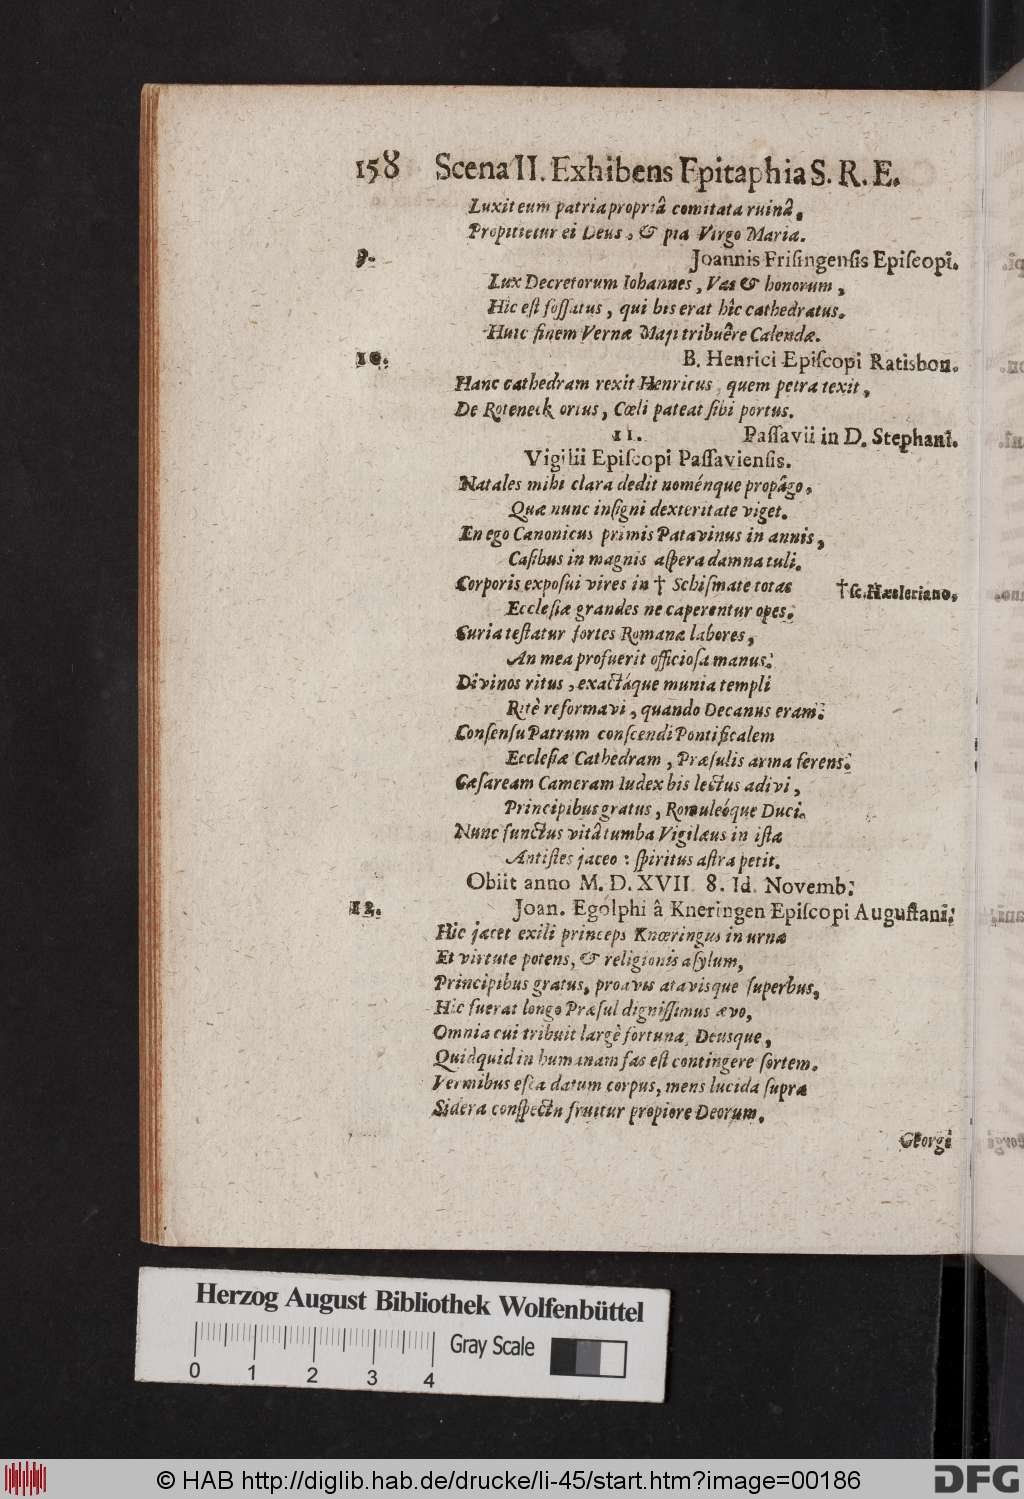 158 Scena II. Exhibens Epitaphia S. R. E.
Luxit eum patria propriâ comitata ruinâ.
Propitietur ei Deus, & pia Virgo Maria.
9. Joannis Frisingensis Episcopi.
Lux Decretorum Iohannes, Vas & honorum,
Hic est fossatus, qui bis erat hîc cathedratus.
Huic finem Vernæ Maji tribuêre Calendæ.
10. B. Henrici Episcopi Ratisbon.
Hanc cathedram rexit Henricus, quem petra texit,
De Roteneck ortus, Cœli pateat sibi portus.
11. Passavii in D. Stephani.
Vigilii Episcopi Passaviensis.
Natales mihi clara dedit noménque propâgo,
Quæ nunc insigni dexteritate viget.
En ego Canonicus primis Patavinus in annis,
Casibus in magnis aspera damna tuli.
Corporis exposui vires in † Schismate totas †sc. Hæsleriano.
Ecclesiæ grandes ne caperentur opes.
Curia testatur fortes Romana labores,
An mea profuerit officiosa manus.
Divinos ritus, exactáque munia templi
Ritè reformavi, quando Decanus eram.
Consensu Patrum conscendi Pontificalem
Ecclesiæ Cathedram, Præsulis arma ferens.
Cæsaream Cameram Iudex bis lectus adivi,
Principibus gratus, Romuleóque Duci.
Nunc functus vitâ tumba Vigilæus in ista
Antistes jaceo: spiritus astra petit.
Obiit anno M. D. XVII. 8. Id. Novemb.
12. Joan. Egolphi â Kneringen Episcopi Augustani.
Hic jacet exili princeps Knœringus in urna
Et virtute potens, & religionis asylum,
Principibus gratus, proavis atavisque superbus,
Hic fuerat longo Præsul dignissimus ævo,
Omnia cui tribuit largè fortuna, Deusque,
Quidquid in humanam fas est contingere sortem.
Vermibus esca datum corpus, mens lucida supra
Sidera conspectu fruitur propiore Deorum.
Georgi
Herzog August Bibliothek Wolfenbüttel
0 1 2 3 4 Gray Scale
© HAB http://diglib.hab.de/drucke/li-45/start.htm?image=00186
DFG